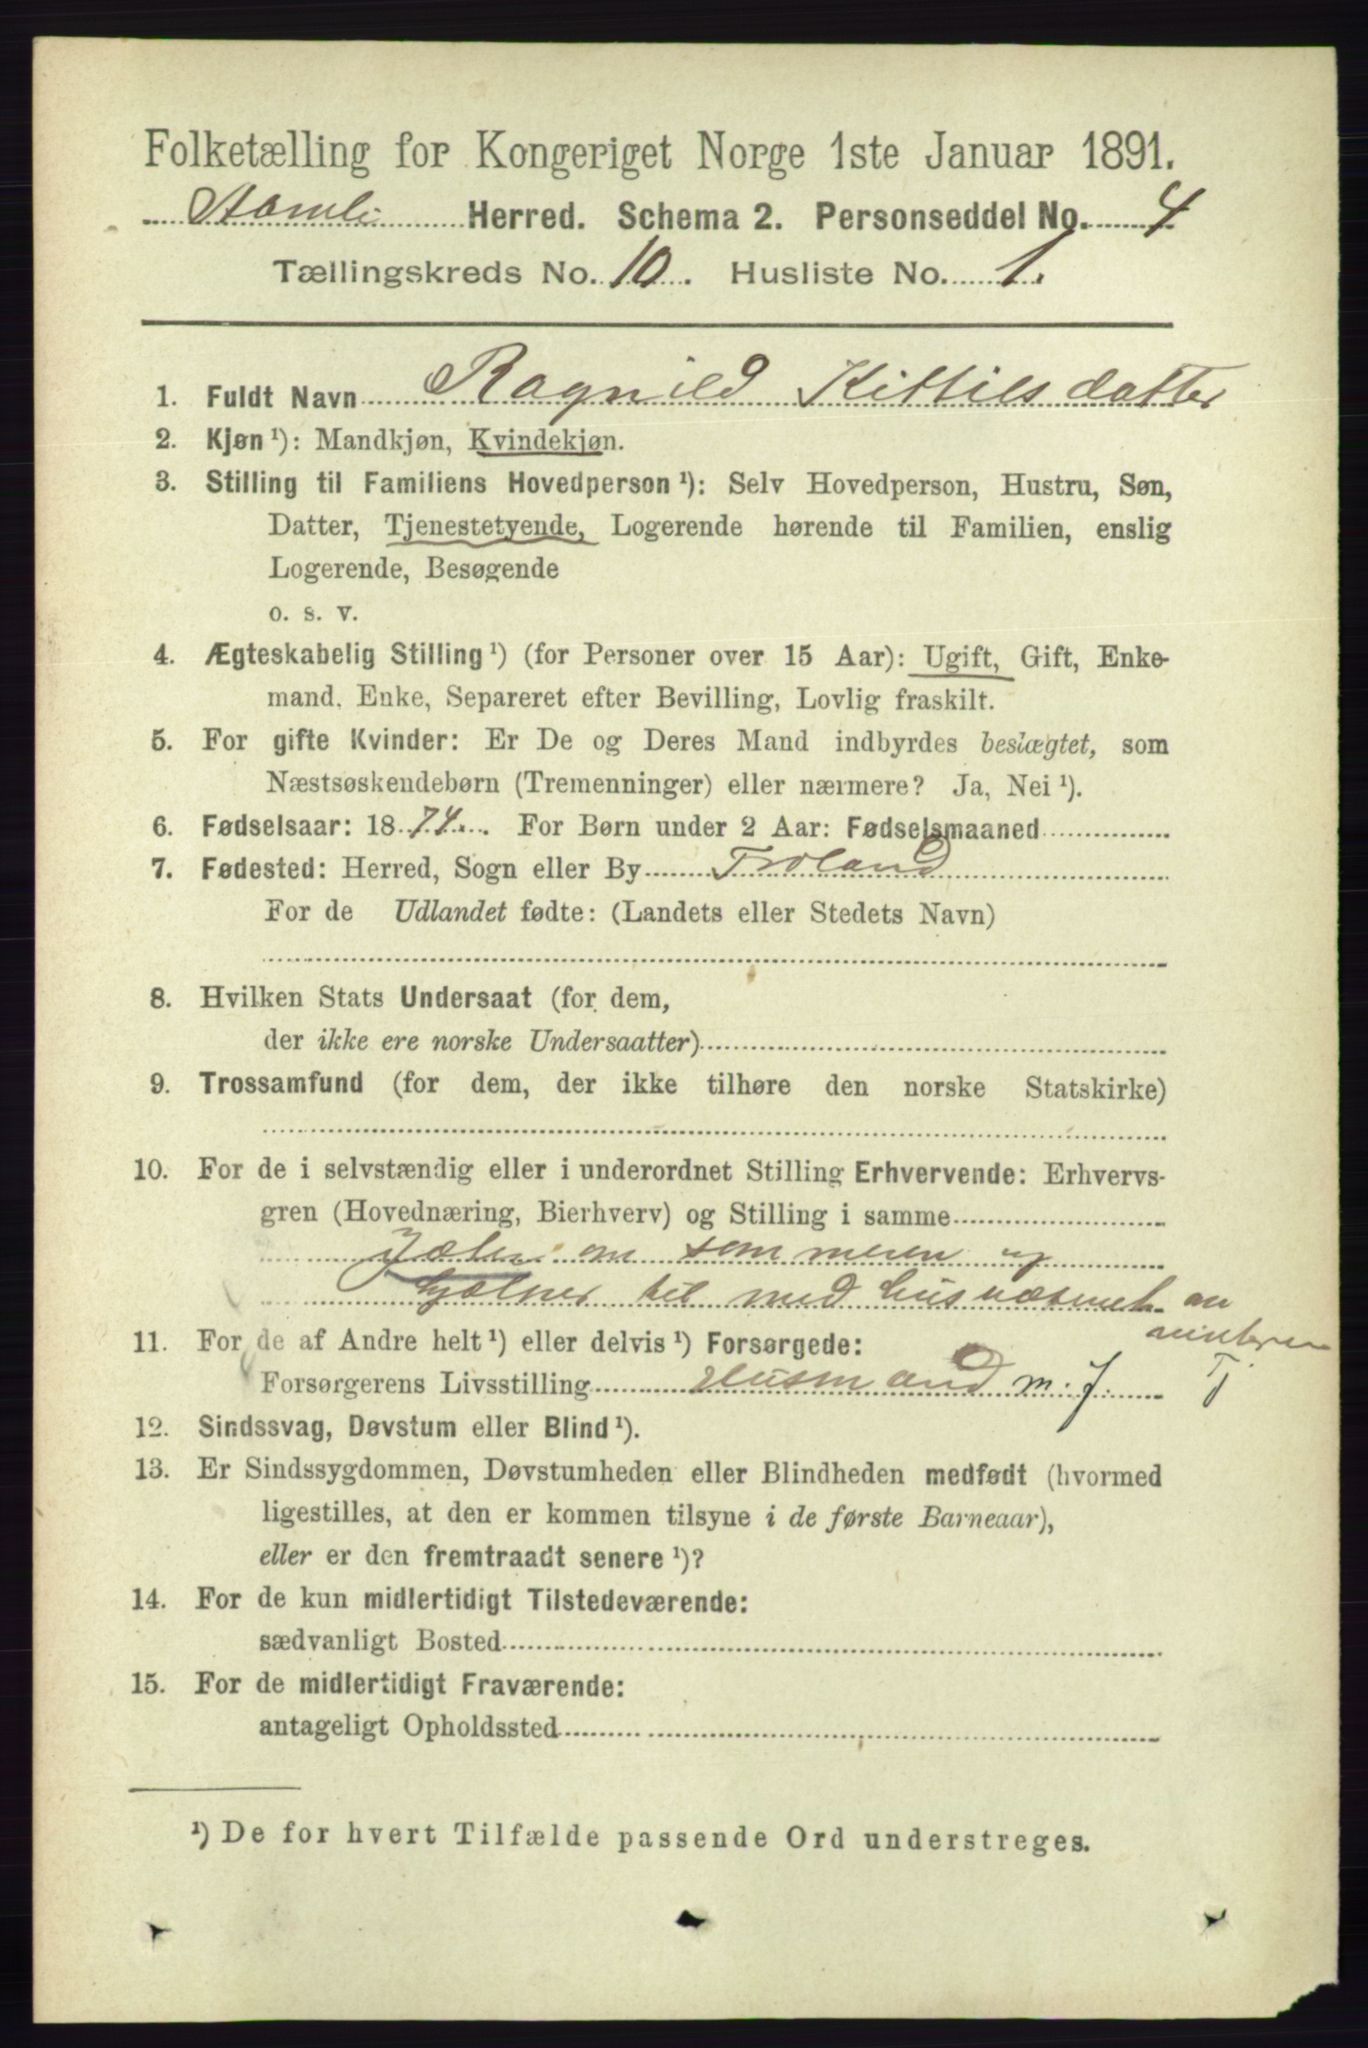 Folketælling for Kongeriget Norge 1ste Januar 1891.
Aamli Herred. Schema 2. Personseddel No. 4
Tællingskreds No. 10. Husliste No. 1.
1. Fuldt Navn Ragnild Kittilsdatter
2. Kjøn ¹): Mandkjøn, Kvindekjøn.
3. Stilling til Familiens Hovedperson ¹): Selv Hovedperson, Hustru, Søn,
Datter, Tjenestetyende, Logerende hørende til Familien, enslig
Logerende, Besøgende
o. s. v.
4. Ægteskabelig Stilling ¹) (for Personer over 15 Aar): Ugift, Gift, Enke-
mand, Enke, Separeret efter Bevilling, Lovlig fraskilt.
5. For gifte Kvinder: Er De og Deres Mand indbyrdes beslægtet, som
Næstsøskendebørn (Tremenninger) eller nærmere? Ja, Nei ¹).
6. Fødselsaar: 1874. For Børn under 2 Aar: Fødselsmaaned
7. Fødested: Herred, Sogn eller By Froland
For de Udlandet fødte: (Landets eller Stedets Navn)
8. Hvilken Stats Undersaat (for dem,
der ikke ere norske Undersaatter)
9. Trossamfund (for dem, der ikke tilhøre den norske Statskirke)
10. For de i selvstændig eller i underordnet Stilling Erhvervende: Erhvervs-
gren (Hovednæring, Bierhverv) og Stilling i samme
om sommeren og
til med husvæsenet om
vinteren
11. For de af Andre helt ¹) eller delvis ¹) Forsørgede:
Forsørgerens Livsstilling Husmand m. J. T
12. Sindssvag, Døvstum eller Blind ¹).
13. Er Sindssygdommen, Døvstumheden eller Blindheden medfødt (hvormed
ligestilles, at den er kommen tilsyne i de første Barneaar),
eller er den fremtraadt senere ¹)?
14. For de kun midlertidigt Tilstedeværende:
sædvanligt Bosted
15. For de midlertidigt Fraværende:
antageligt Opholdssted
¹) De for hvert Tilfælde passende Ord understreges.